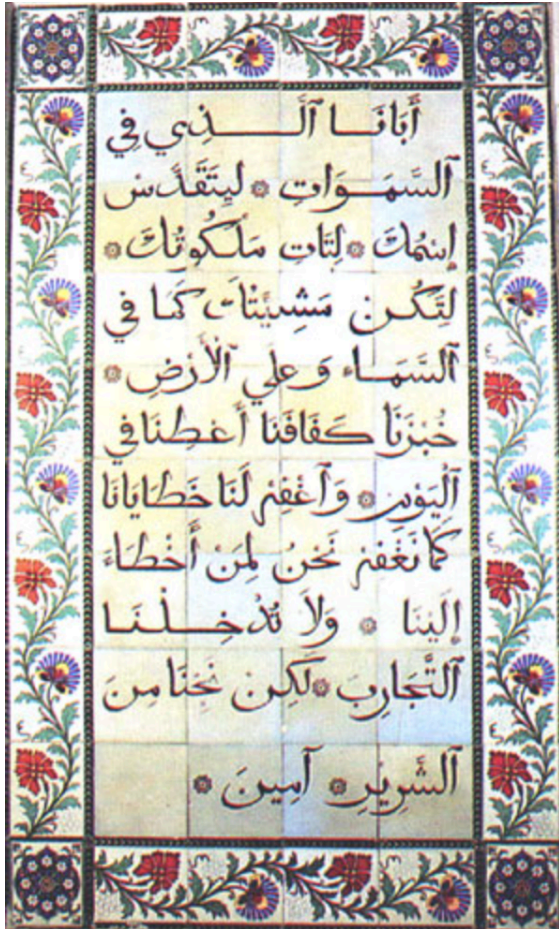 أَبَانَا ٱلَّذِي فِي
ٱلسَّمَوَاتِ * لِيَتَقَدَّسِ
إِسْمُكَ * لِتَاتِ مَلَكُوتُكَ *
لِتَكُنْ مَشِيئَتُكَ كَمَا فِي
ٱلسَّمَاء وَعَلَي ٱلْأَرْضِ *
خُبْزَنَا كَفَافَنَا أَعْطِنَا فِي
ٱلْيَوْمِ * وَٱغْفِرْ لَنَا خَطَايَانَا
كَمَا نَغْفِرُ نَحْنُ لِمَنْ أَخْطَاءَ
إِلَيْنَا * وَلَا تُدْخِلْنَا
ٱلتَّجَارِبَ * لَكِنْ نَجِّنَا مِنَ
ٱلشَّرِيرِ * آمِينَ *